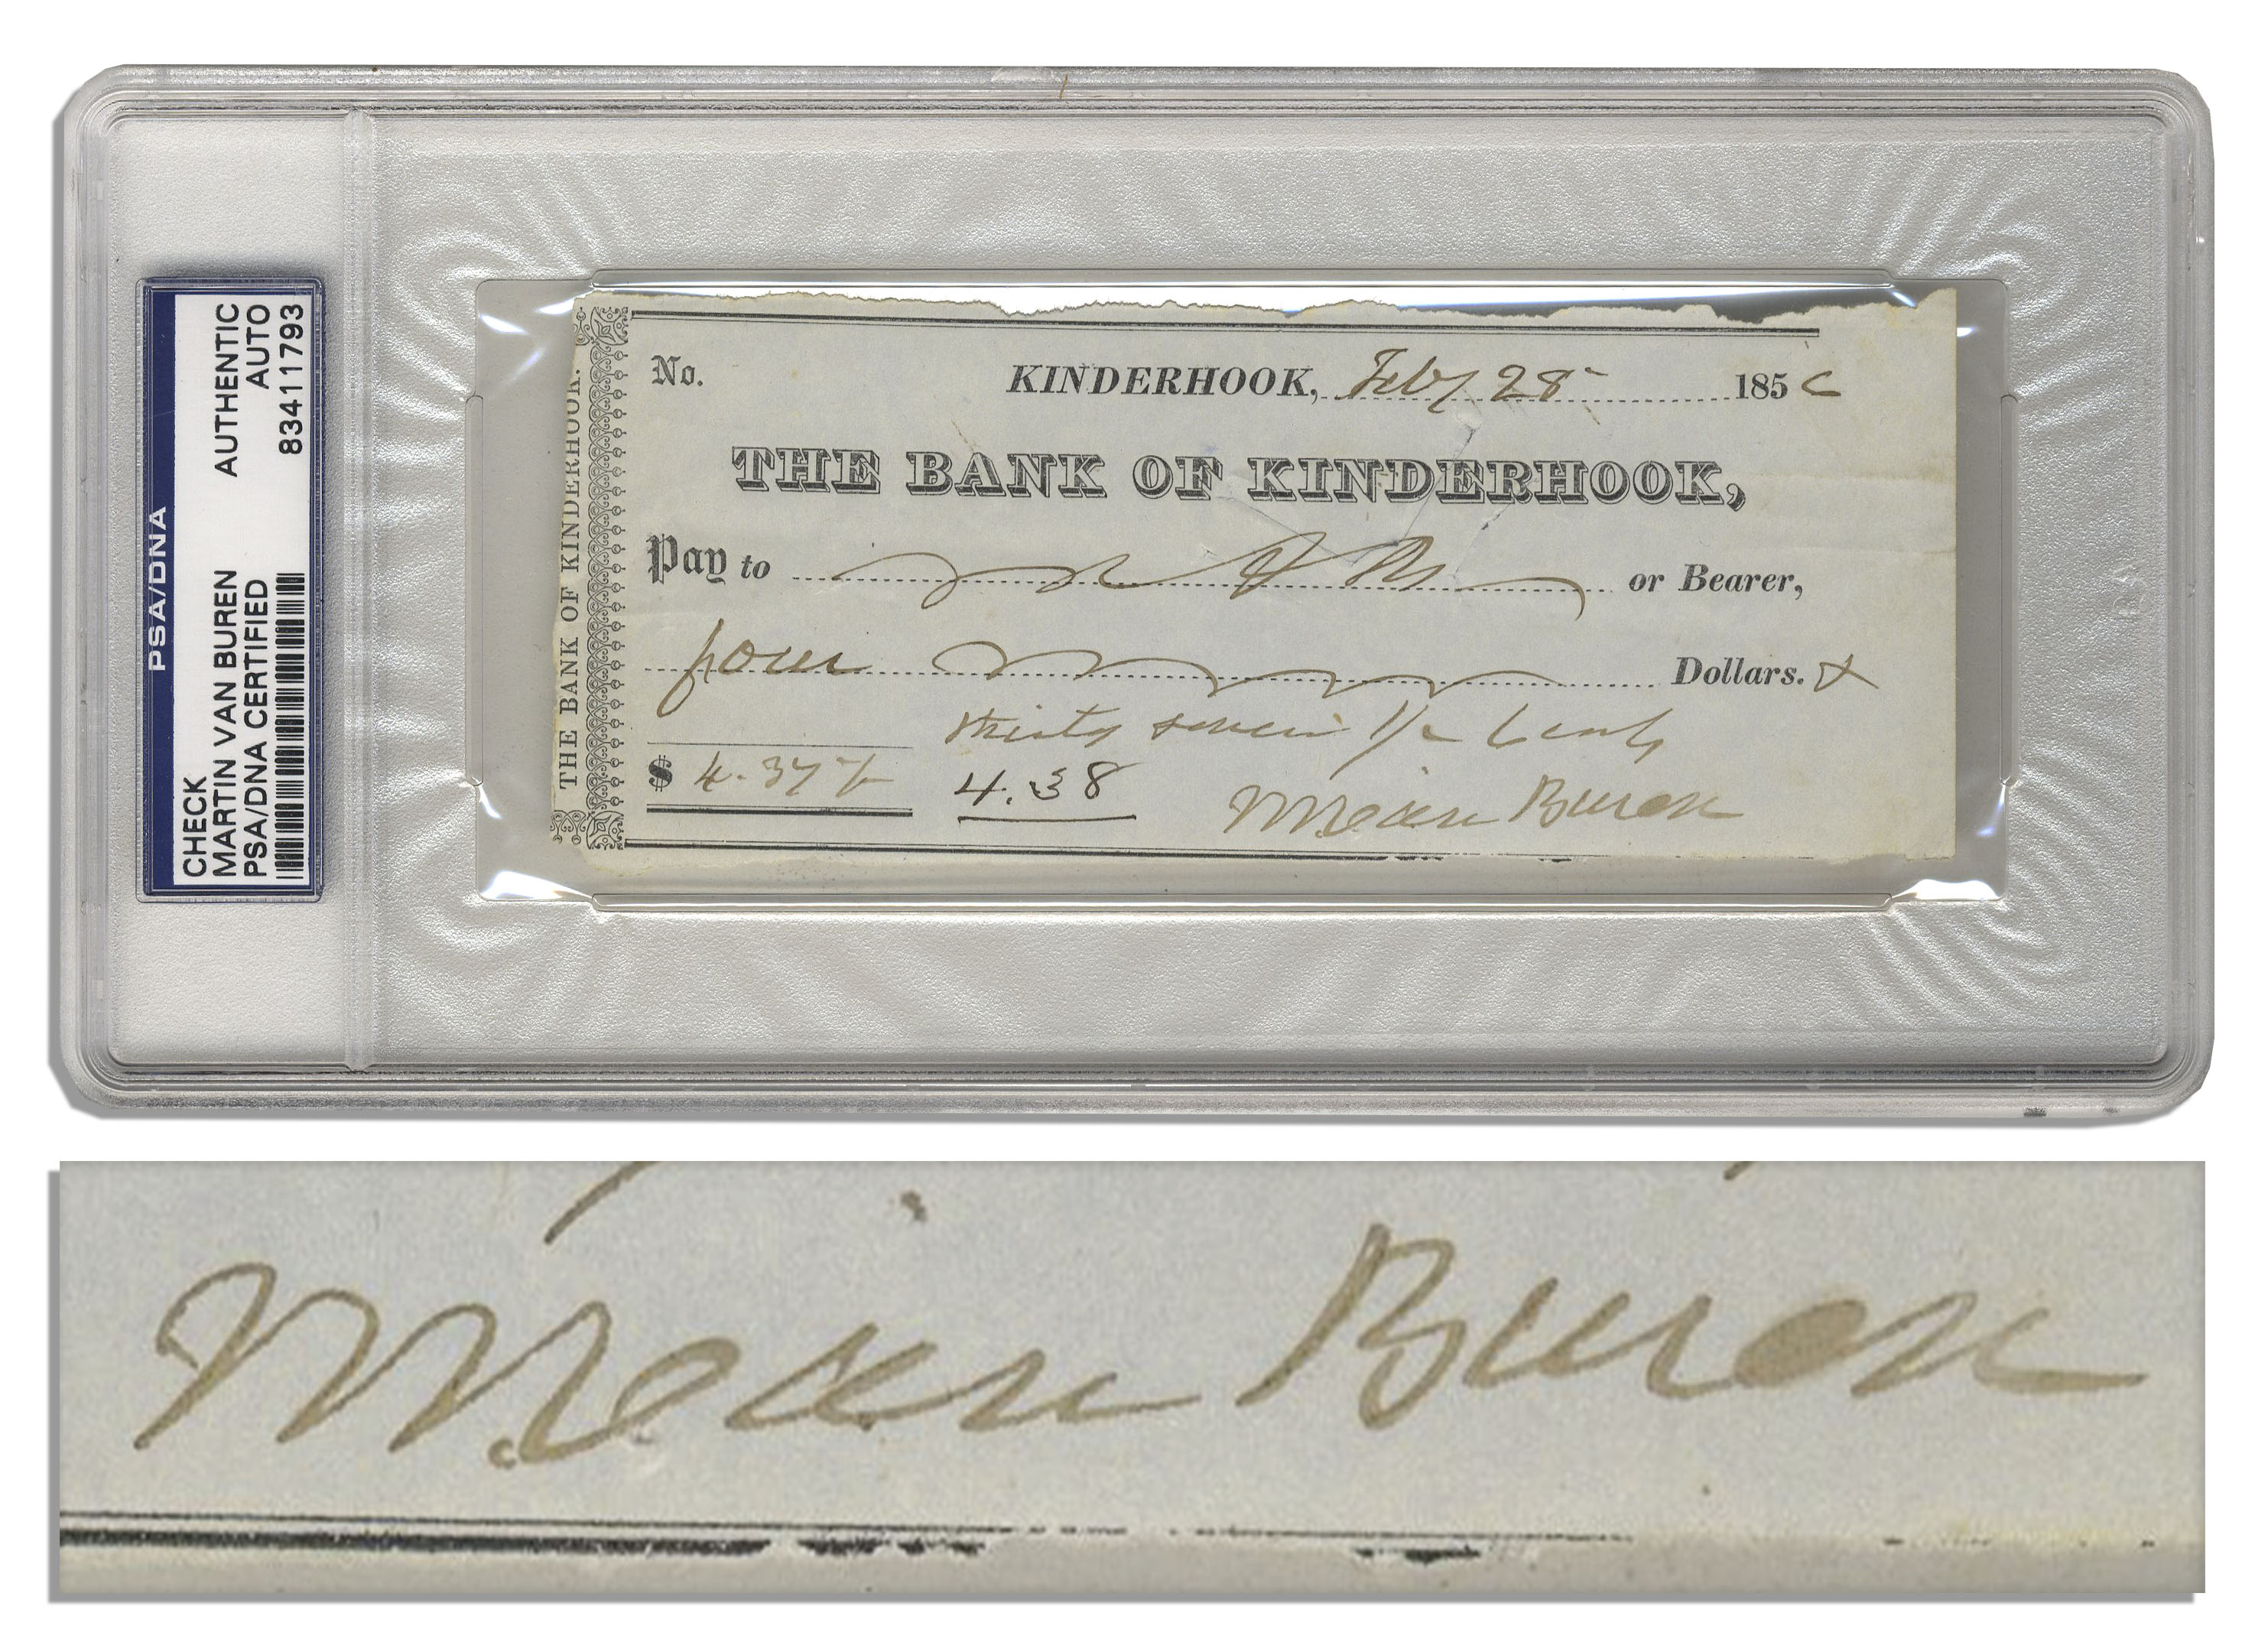 PSA/DNA
CHECK AUTHENTIC
MARTIN VAN BUREN AUTO
PSA/DNA CERTIFIED 83411793
THE BANK OF KINDERHOOK.
No. KINDERHOOK, Feby 28 1856
THE BANK OF KINDERHOOK,
Pay to or Bearer,
four Dollars. &
thirty seven 1/2 Cents
$ 4.37 1/2 4.38
M Van Buren
M Van Buren